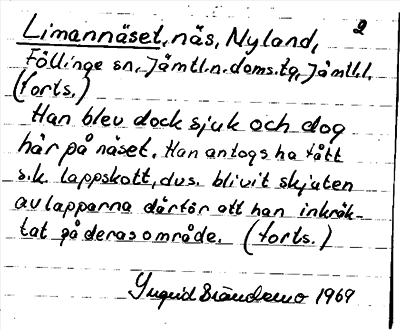 2
Limannäset, näs, Nyland,
Föllinge sn, Jämtl.n.doms.tg, Jämtl.l.
(forts.)
Han blev dock sjuk och dog
här på näset. Han antogs ha fått
s.k. lappskott, dvs. blivit skjuten
av lapparna därför att han inkräk-
tat på deras område. (forts.)
Yngrid 1969